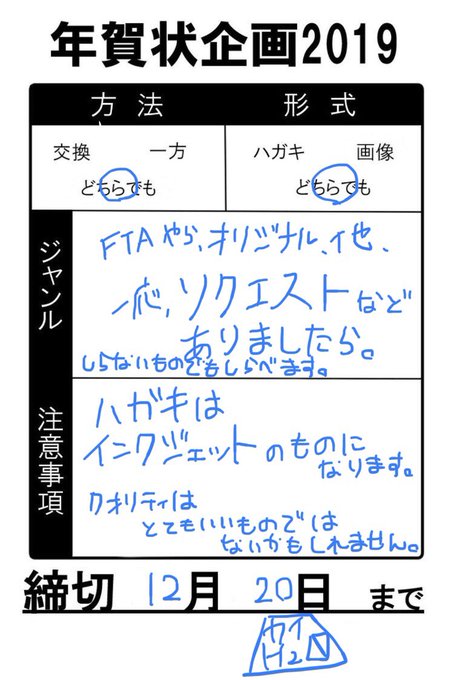 年賀状企画2019
方法 形式
交換 一方 ハガキ 画像
どちらでも どちらでも
ジャンル
FTAやら、オリジナル、イ也、
一応、リクエストなど
ありましたら。
しらないものでもしらべます。
注意事項
ハガキは
インクジェットのものに
なります。
クオリティは
とてもいいものでは
ないかもしれません。
締切 12月 20日 まで